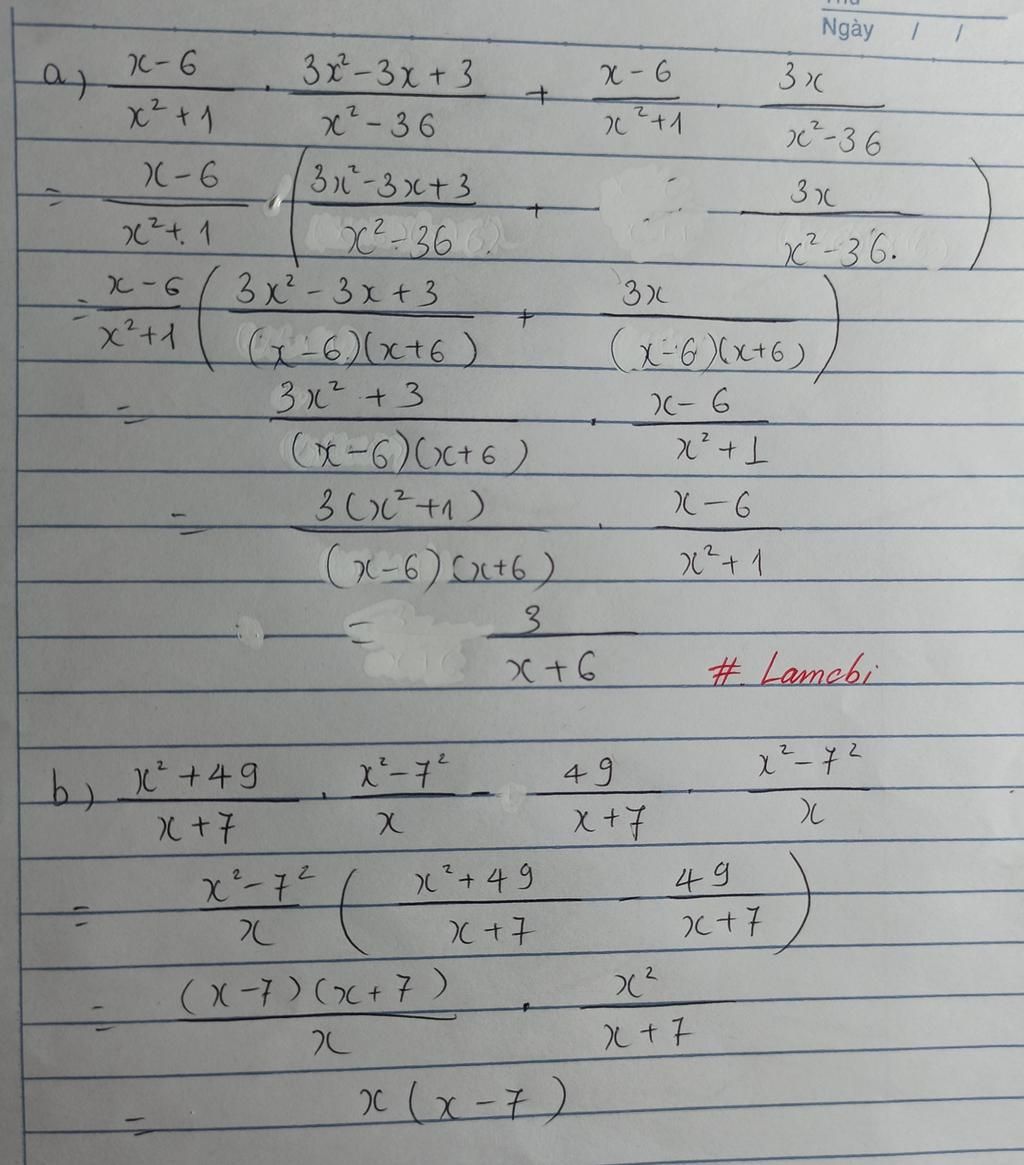 Ngày / /
a) \frac{x-6}{x^2+1} . \frac{3x^2-3x+3}{x^2-36} + \frac{x-6}{x^2+1} . \frac{3x}{x^2-36}
= \frac{x-6}{x^2+1} . ( \frac{3x^2-3x+3}{x^2-36} + \frac{3x}{x^2-36.} )
= \frac{x-6}{x^2+1} ( \frac{3x^2-3x+3}{(x-6)(x+6)} + \frac{3x}{(x-6)(x+6)} )
= \frac{3x^2+3}{(x-6)(x+6)} . \frac{x-6}{x^2+1}
= \frac{3(x^2+1)}{(x-6)(x+6)} . \frac{x-6}{x^2+1}
= \frac{3}{x+6} # Lamcbi
b) \frac{x^2+49}{x+7} . \frac{x^2-7^2}{x} - \frac{49}{x+7} . \frac{x^2-7^2}{x}
= \frac{x^2-7^2}{x} ( \frac{x^2+49}{x+7} - \frac{49}{x+7} )
= \frac{(x-7)(x+7)}{x} . \frac{x^2}{x+7}
= x(x-7)